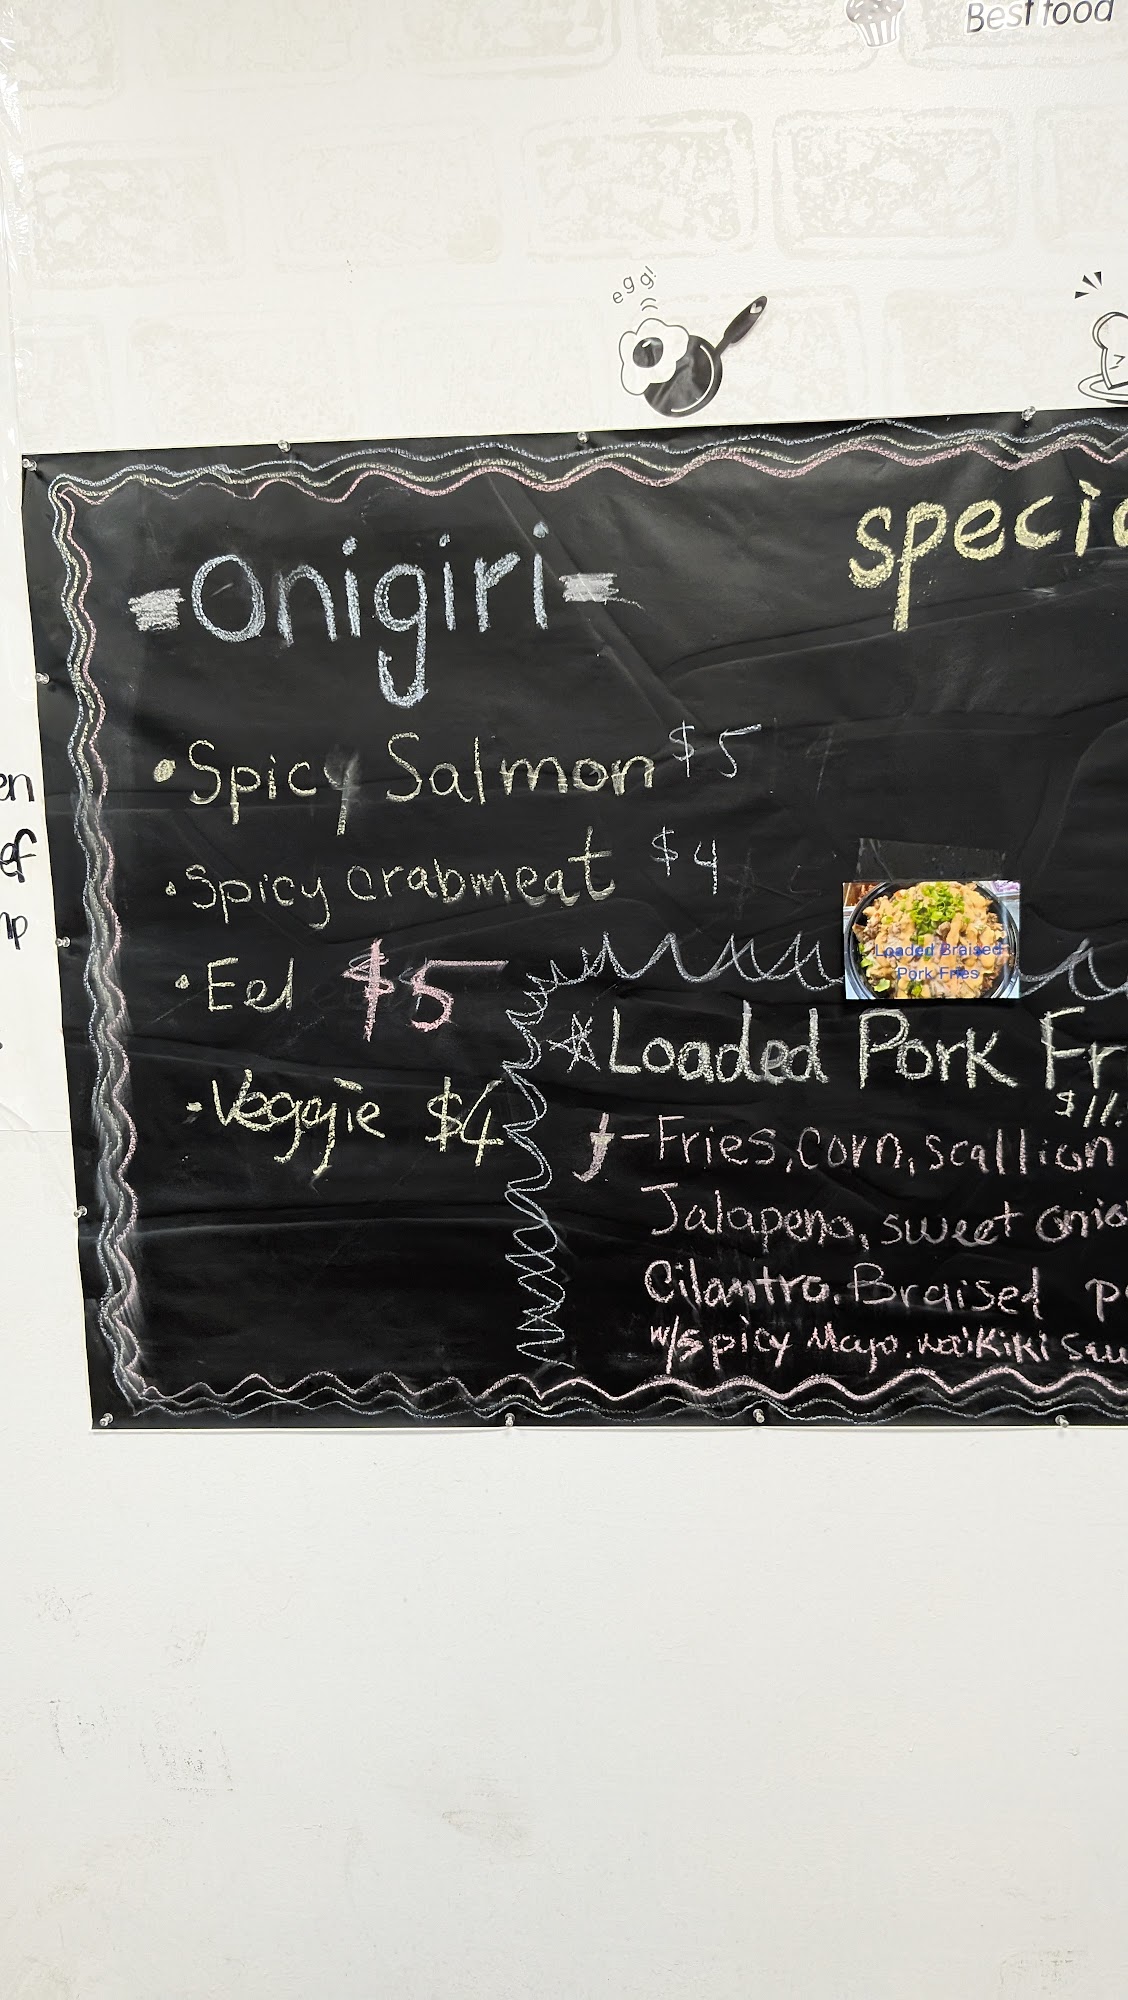 Best food
egg!
Onigiri
special
• Spicy Salmon $5
• Spicy crabmeat $4
• Eel $5
• Veggie $4
Loaded Braised
Pork Fries
Loaded Pork Fr
$11.
- Fries, corn, scallion
Jalapeno, sweet onio
Cilantro. Braised p
w/spicy Mayo. waikiki sau
en
ef
mp